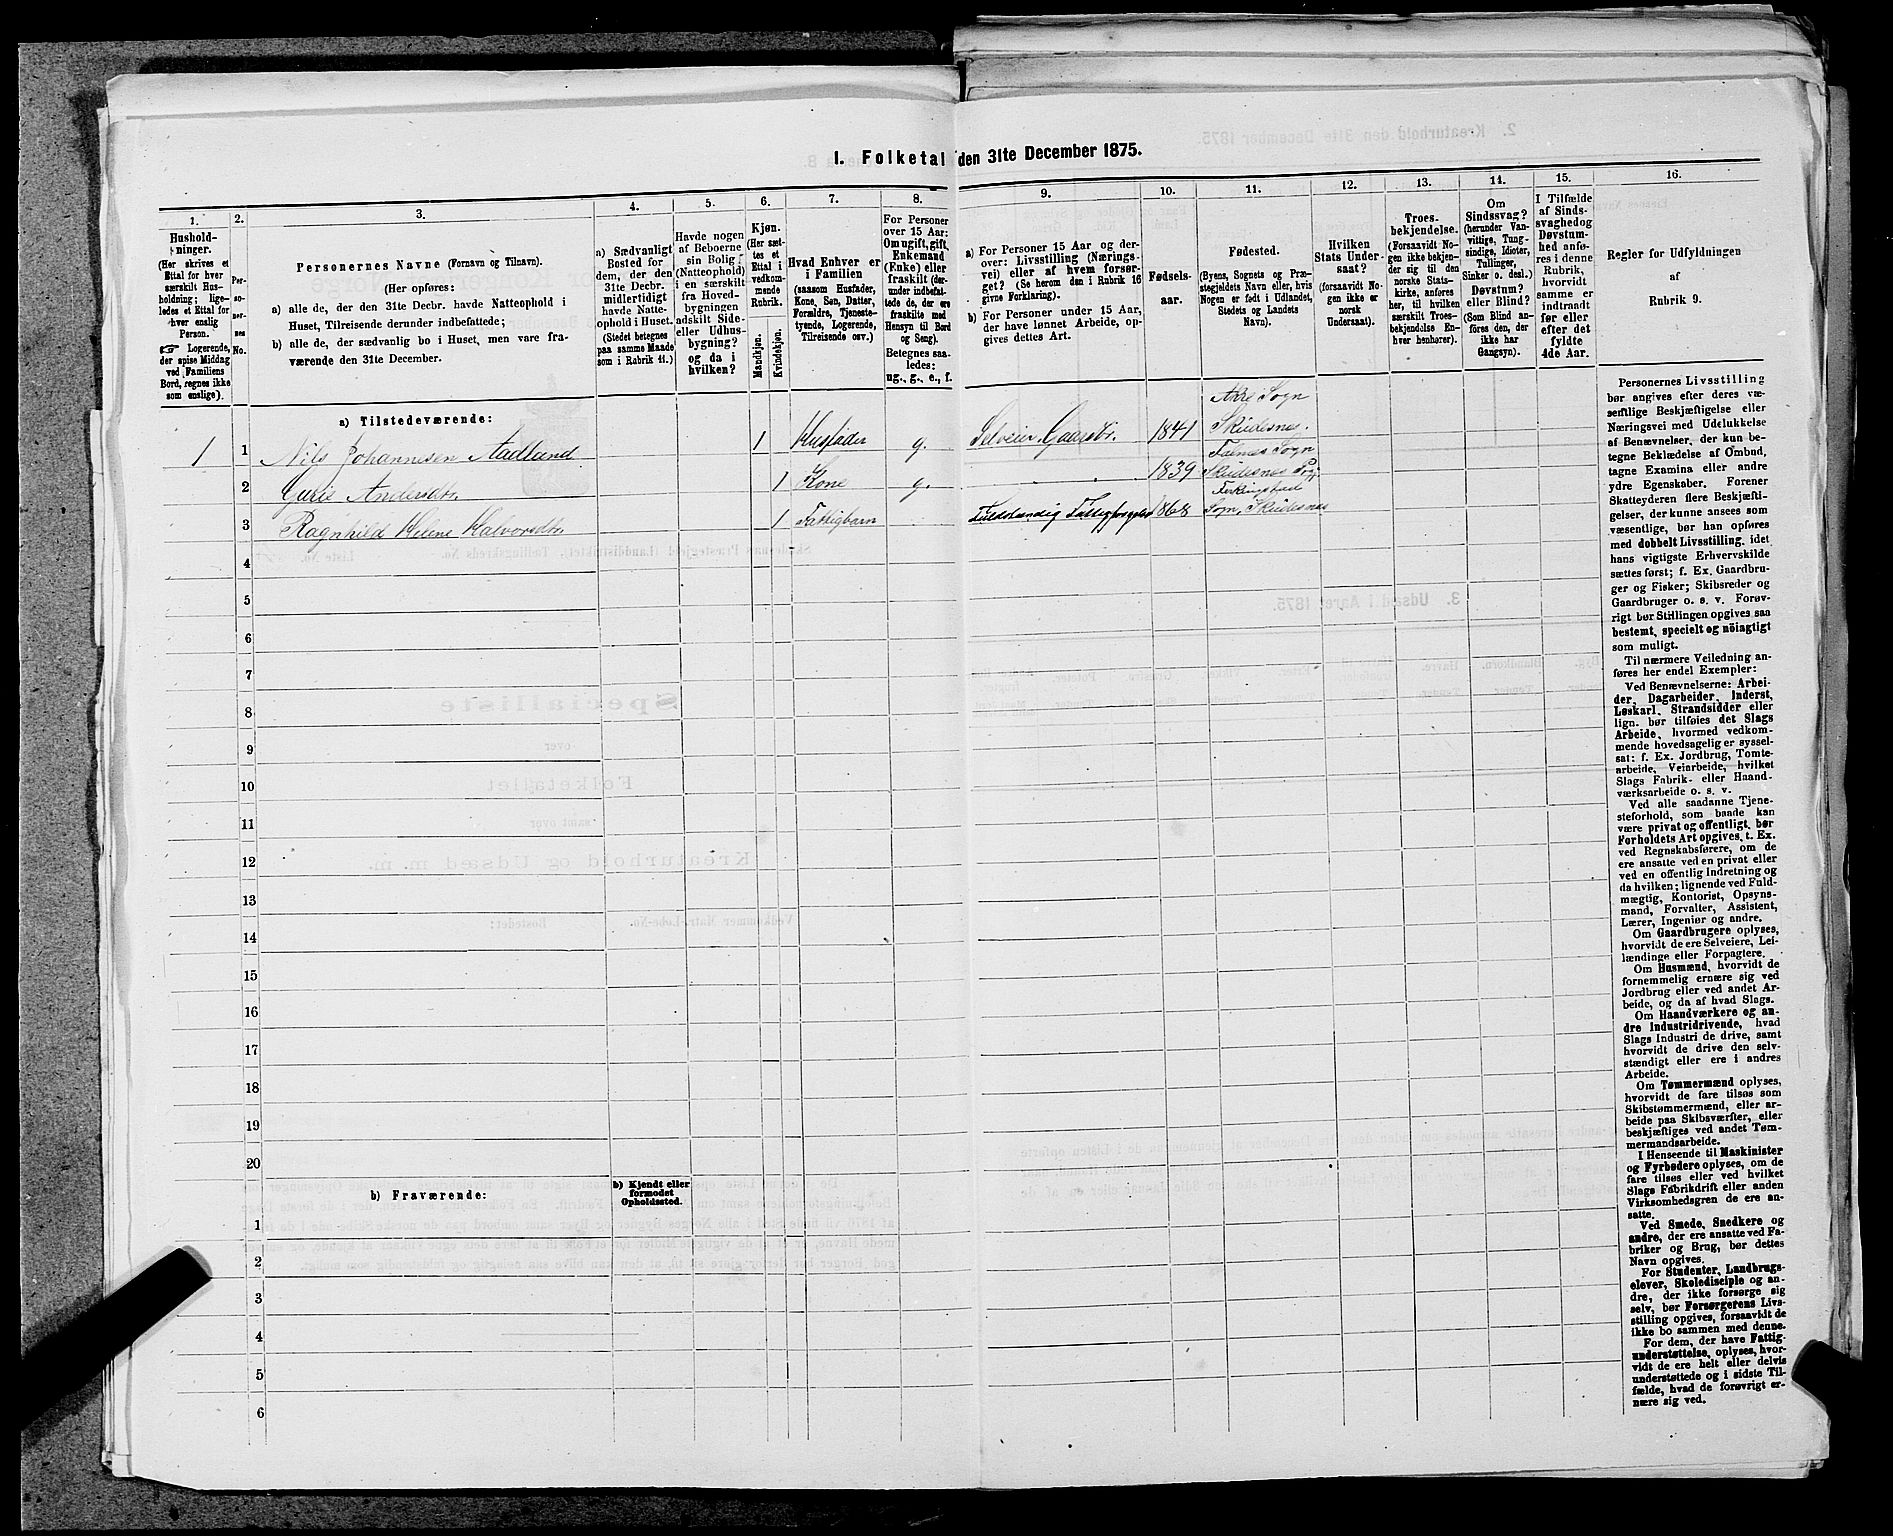 I. Folketal den 31te December 1875.
1.
2.
3.
4.
5.
6.
7.
8.
9.
10.
11.
12.
13.
14.
15.
16.
Hushold-
ninger.
(Her skrives et
Ettal for hver
særskilt Hus-
holdning; lige-
ledes et Ettal for
hver enslig
Person.
☞ Logerende,
der spise Middag
ved Familiens
Bord, regnes ikke
som enslige).
Per-
so-
ner-
nes
No.
Personernes Navne (Fornavn og Tilnavn).
(Her opføres:
a) alle de, der den 31te Decbr. havde Natteophold i
Huset, Tilreisende derunder indbefattede;
b) alle de, der sædvanlig bo i Huset, men vare fra-
værende den 31te December.
a) Sædvanligt
Bosted for
dem, der den
31te Decbr.
midlertidigt
havde Natte-
ophold i Huset.
(Stedet betegnes
paa samme Maade
som i Rubrik 11.)
Havde nogen
af Beboerne
sin Bolig
(Natteophold)
i en særskilt
fra Hoved-
bygningen
adskilt Side-
eller Udhus-
bygning?
og da i
hvilken?
Kjøn.
(Her sæt-
tes et
Ettal i
vedkom-
mende
Rubrik.
Mandkjøn.
Kvindekjøn.
Hvad Enhver er
i Familien
(saasom Husfader,
Kone, Søn, Datter,
Forældre, Tjeneste-
tyende, Logerende,
Tilreisende osv.)
For Personer
over 15 Aar:
Om ugift, gift,
Enkemand
(Enke) eller
fraskilt (der-
under indbefat-
tede de, der ere
fraskilte med
Hensyn til Bord
og Seng).
Betegnes saa-
ledes:
ug., g., e., f.
a) For Personer 15 Aar og der-
over: Livsstilling (Nærings-
vei) eller af hvem forsør-
get? (Se herom den i Rubrik 16
givne Forklaring).
b) For Personer under 15 Aar,
der have lønnet Arbeide, op-
gives dettes Art.
Fødsels-
aar.
Fødested.
(Byens, Sognets og Præ-
stegjeldets Navn eller, hvis
Nogen er født i Udlandet,
Stedets og Landets
Navn).
Hvilken
Stats Under-
saat?
(forsaavidt No-
gen ikke er
norsk
Undersaat).
Troes-
bekjendelse.
(Forsaavidt No-
gen ikke bekjen-
der sig til den
norske Stats-
kirke, anføres
her, til hvilken
særskilt Troes-
bekjendelse En-
hver henhører).
Om
Sindssvag?
(herunder Van-
vittige, Tung-
sindige, Idioter,
Tullinger,
Sinker o. desl.)
Døvstum?
eller Blind?
(Som Blind an-
føres den, der
ikke har
Gangsyn).
I Tilfælde
af Sinds-
svaghed og
Døvstum-
hed anfø-
res i denne
Rubrik,
hvorvidt
samme er
indtraadt
før eller
efter det
fyldte
4de Aar.
Regler for Udfyldningen
af
Rubrik 9.
a) Tilstedeværende:
1 1 Nils Johannesen Aadland 1 Husfader g. Selveier Gaardbr. 1841 Akre Sogn Skudesnes.
2 Gurie Andersdtr. 1 Kone g. 1839 Falnes Sogn Skudesnes
3 Ragnhild Helene Halvorsdtr. 1 Fattigbarn 1868 Ferkingstad Sogn, Skudesnes
4
5
6
7
8
9
10
11
12
13
14
15
16
17
18
19
20
b) Fraværende:
b) Kjendt eller
formodet
Opholdssted.
1
2
3
4
5
6
Personernes Livsstilling
bør angives efter deres væ-
sentlige Beskjæftigelse eller
Næringsvei med Udelukkelse
af Benævnelser, der kun be-
tegne Beklædelse af Ombud,
tagne Examina eller andre
ydre Egenskaber. Forener
Skatteyderen flere Beskjæfti-
gelser, der kunne ansees som
væsentlige, bør han opføres
med dobbelt Livsstilling, idet
hans vigtigste Erhvervskilde
sættes først; f. Ex. Gaardbru-
ger og Fisker; Skibsreder og
Gaardbruger o. s. v. Forøv-
rigt bør Stillingen opgives saa
bestemt, specielt og nöiagtigt
som muligt.
Til nærmere Veiledning an-
føres her endel Exempler:
Ved Benævnelserne: Arbei-
der, Dagarbeider, Inderst,
Løskarl, Strandsidder eller
lign. bør tilføies det Slags
Arbeide, hvormed vedkom-
mende hovedsagelig er syssel-
sat: f. Ex. Jordbrug, Tomte-
arbeide, Veiarbeide, hvilket
Slags Fabrik- eller Haand-
værksarbeide o. s. v.
Ved alle saadanne Tjene-
steforhold, som baade kan
være privat og offentligt, bør
Forholdets Art opgives, t. Ex.
ved Regnskabsførere, om de
ere ansatte ved en privat eller
ved en offentlig Indretning og
da hvilken; lignende ved Fuld-
mægtig, Kontorist, Opsyns-
mand, Forvalter, Assistent,
Lærer, Ingeniør og andre.
Om Gaardbrugere oplyses,
hvorvidt de ere Selveiere, Lei-
lændinge eller Forpagtere.
Om Husmænd, hvorvidt de
fornemmelig ernære sig ved
Jordbrug eller ved andet Ar-
beide, og da af hvad Slags.
Om Haandværkere og an-
dre Industridrivende, hvad
Slags Industri de drive, samt
hvorvidt de drive den selv-
stændigt eller ere i andres
Arbeide.
Om Tømmermænd oplyses,
hvorvidt de fare tilsøs som
Skibstømmermænd, eller ar-
beide paa Skibsværfter, eller
beskjæftiges ved andet Tøm-
mermandsarbeide.
I Henseende til Maskinister
og Fyrbødere oplyses, om de
fare tilsøs eller ved hvilket
Slags Fabrikdrift eller anden
Virksomhedsgren de ere an-
satte.
Ved Smede, Snedkere og
andre, der ere ansatte ved Fa-
briker og Brug, bør dettes
Navn opgives.
For Studenter, Landbrugs-
elever, Skoledisciple og an-
dre, der ikke forsørge sig
selv, bør Forsørgerens Livs-
stilling opgives, forsaavidt de
ikke bo sammen med denne.
For dem, der have Fattig-
understøttelse, oplyses, hvor-
vidt de ere helt eller delvis
understøttede og i sidste Til-
fælde, hvad de forøvrigt er-
nære sig ved.